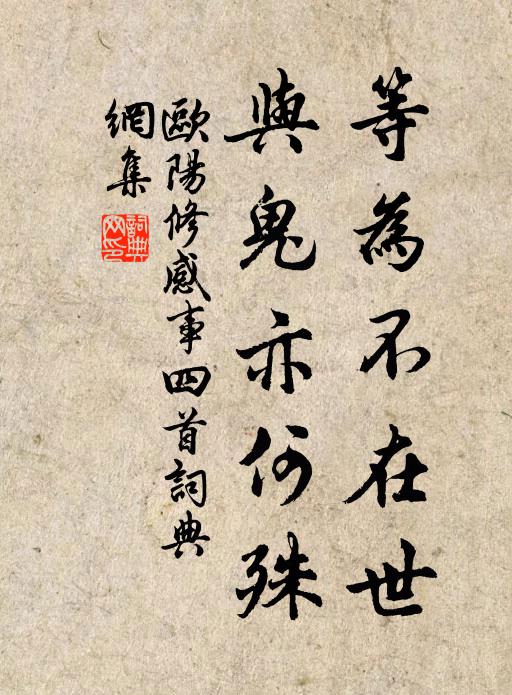 等為不在世
與鬼亦何殊
歐陽修感事四首詞典
網集
詞典
网印